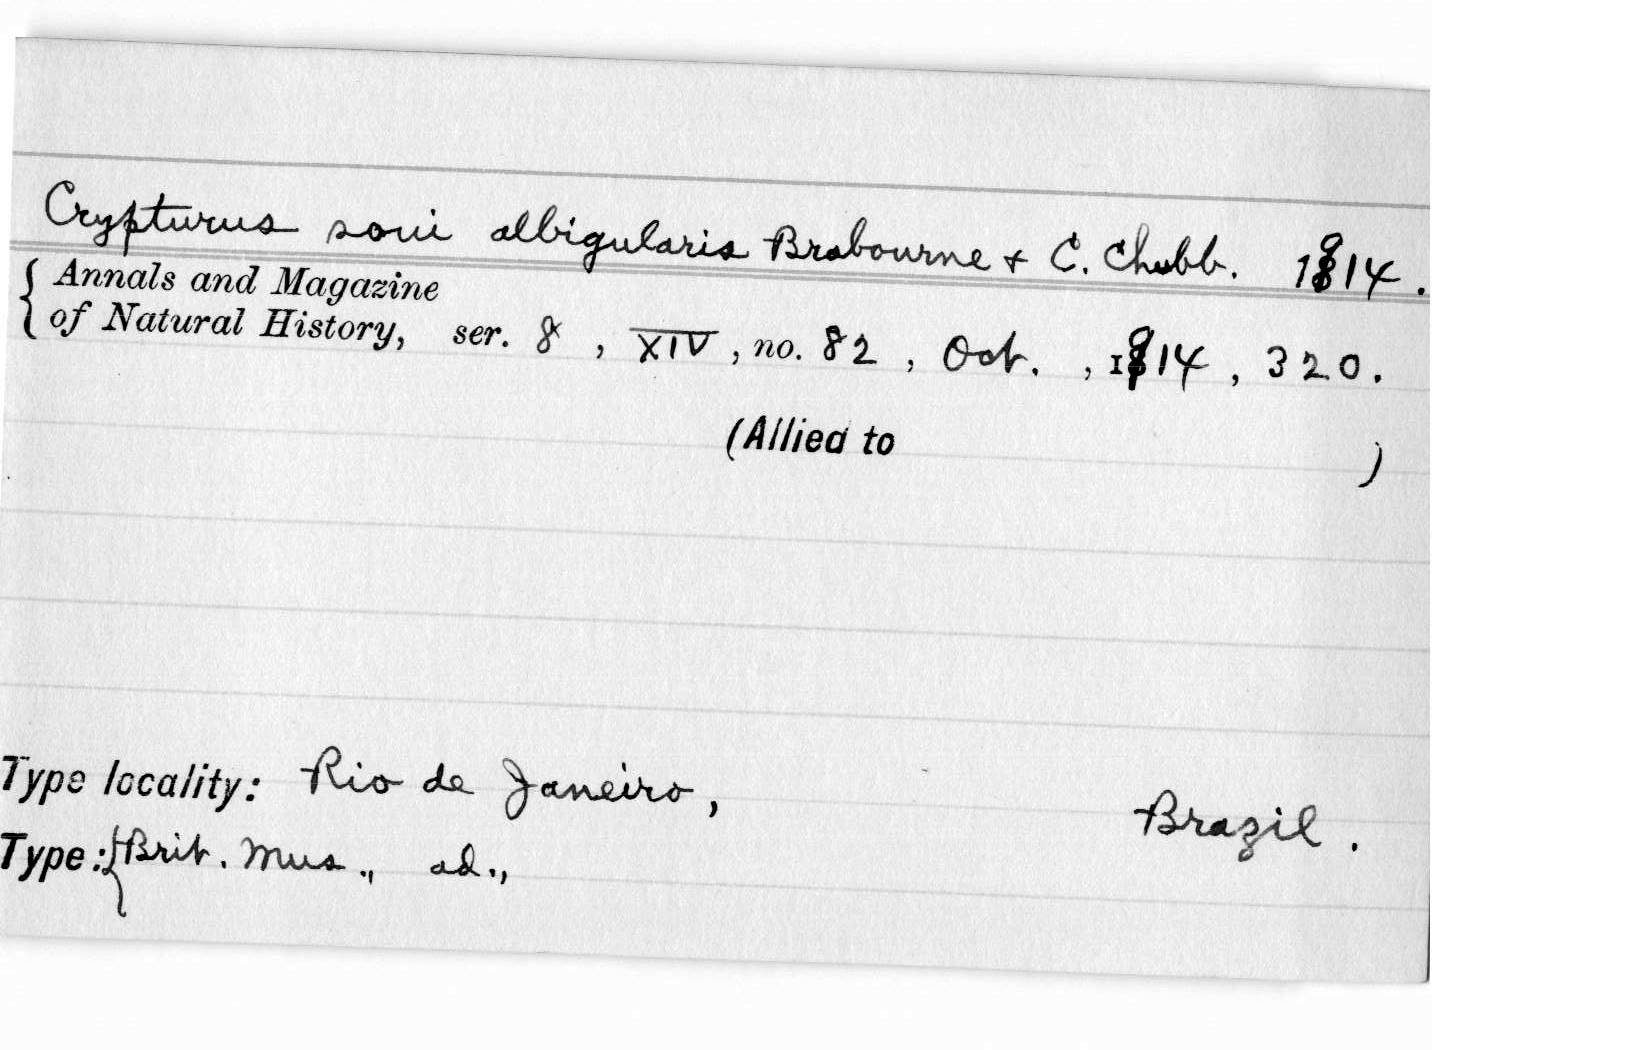 Crypturus soui albigularis Brabourne & C. Chubb. 1914.
Annals and Magazine
of Natural History, ser. 8, XIV, no. 82, Oct., 1914, 320.
(Allied to )
Type locality: Rio de Janeiro, Brazil.
Type: Brit. Mus., ad.,